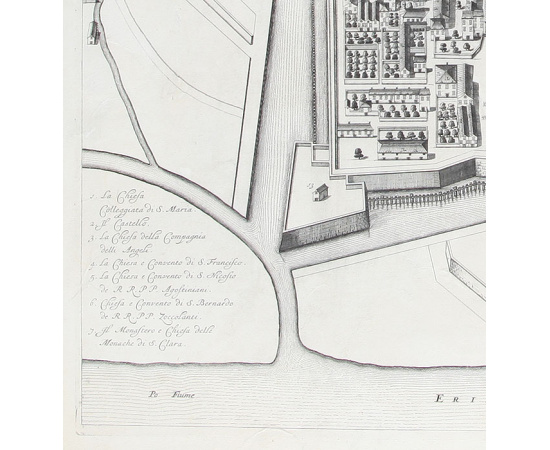 1. La Chiesa
Colleggiata di S. Maria
2. Il Castello.
3. La Chiesa della Compagnia
delli Angeli
4. La Chiesa e Convento di S. Francesco.
5. La Chiesa e Convento di S.
di R R. P P. Agostiniani
6. Chiesa e Convento di S. Bernardo
de R R. P P. Zoccolanti.
7. Il e Chiesa delle
Monache di S. Clara.
Po Fiume
E R I